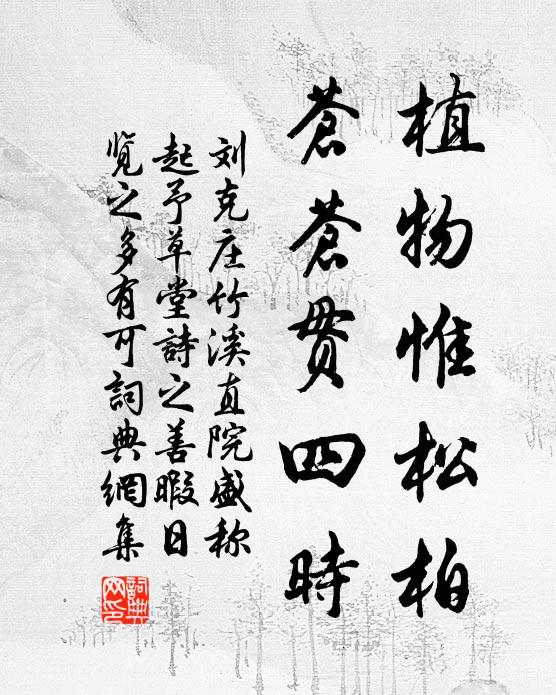 植物惟松柏
蒼蒼貫四時
刘克庄竹溪直院盛称
起予草堂詩之善暇日
览之多有可詞典網集
詞典
网印